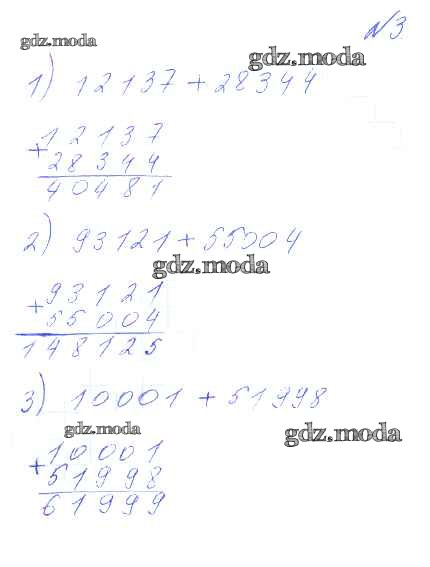 gdz.moda
№3
gdz.moda
1) 12137 + 28344
+ 12137
28344
40481
2) 93121 + 55004
gdz.moda
+ 93121
55004
148125
3) 10001 + 51998
gdz.moda
gdz.moda
+ 10001
51998
61999